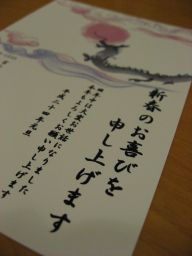 新春のお喜びを
申し上げます
昨年中は大変お世話になりました
本年もよろしくお願い申し上げます
平成二十四年元旦